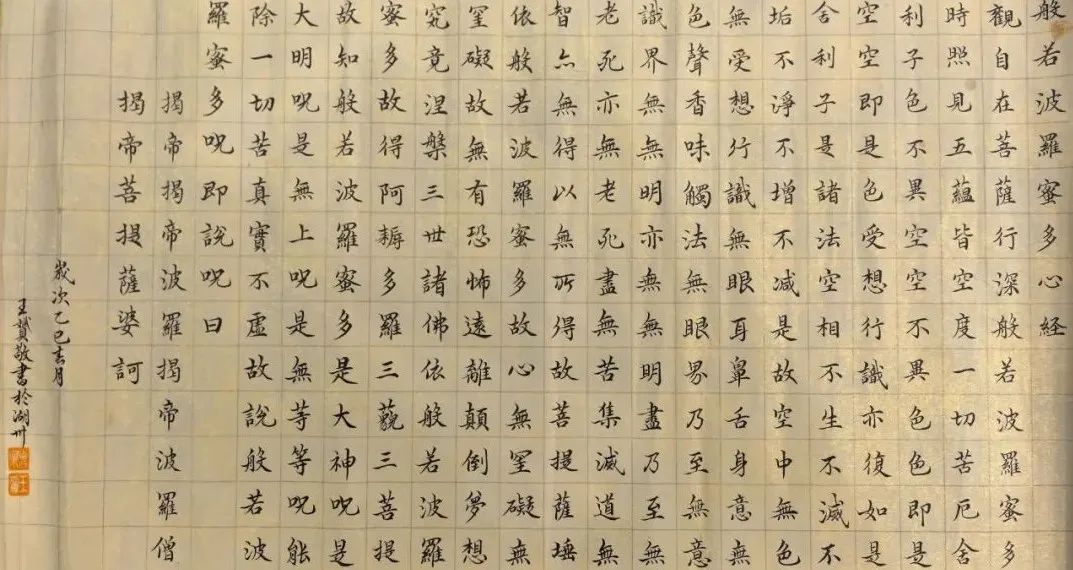 般若波羅蜜多心経
觀自在菩薩行深般若波羅蜜多
時照見五蘊皆空度一切苦厄舍
利子色不異空空不異色色即是
空空即是色受想行識亦復如是
舍利子是諸法空相不生不滅不
垢不淨不增不減是故空中無色
無受想行識無眼耳鼻舌身意無
色聲香味觸法無眼界乃至無意
識界無無明亦無無明盡乃至無
老死亦無老死盡無苦集滅道無
智亦無得以無所得故菩提薩埵
依般若波羅蜜多故心無罣礙無
罣礙故無有恐怖遠離顛倒夢想
究竟涅槃三世諸佛依般若波羅
蜜多故得阿耨多羅三藐三菩提
故知般若波羅蜜多是大神呪是
大明呪是無上呪是無等等呪能
除一切苦真實不虛故說般若波
羅蜜多呪即說呪曰
揭帝揭帝波羅揭帝波羅僧
揭帝菩提薩婆訶
嵗次乙巳春月
王敬書於湖州